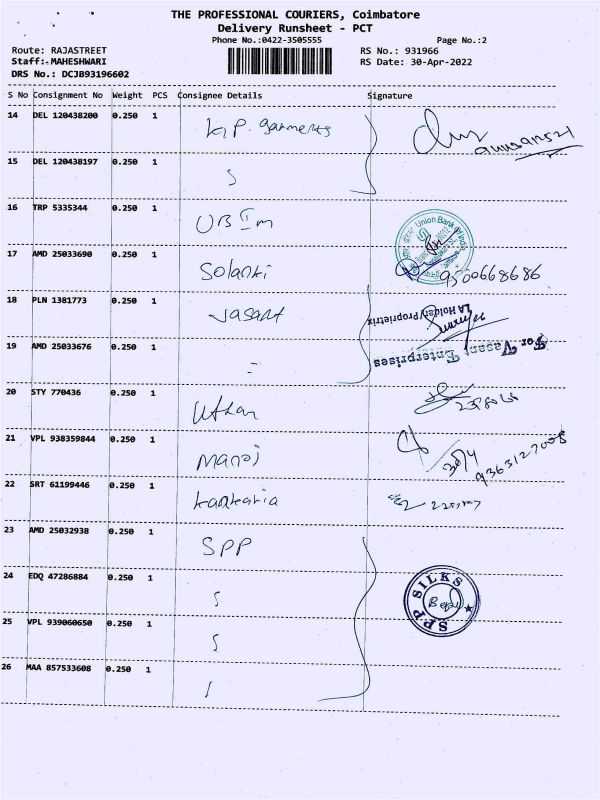 THE PROFESSIONAL COURIERS, Coimbatore
Delivery Runsheet - PCT
Phone No.:0422-3505555 Page No.:2
Route: RAJASTREET RS No.: 931966
Staff: MAHESHWARI RS Date: 30-Apr-2022
DRS No.: DCJB93196602
S No Consignment No Weight PCS Consignee Details Signature
14 DEL 120438200 0.250 1 K.P. garments
15 DEL 120438197 0.250 1
16 TRP 5335344 0.250 1 UBI m
Union Bank
17 AMD 25033690 0.250 1 Solanki 9500668686
18 PLN 1381773 0.250 1 Vasant
For Vasant Enterprises
LA Holder/Proprietrix
19 AMD 25033676 0.250 1
20 STY 770436 0.250 1
21 VPL 938359844 0.250 1 Manoj 30/4 9363127008
22 SRT 61199446 0.250 1 Kankaria
23 AMD 25032938 0.250 1 SPP
24 EDQ 47286884 0.250 1
SPP SILKS
25 VPL 939060650 0.250 1
26 MAA 857533608 0.250 1